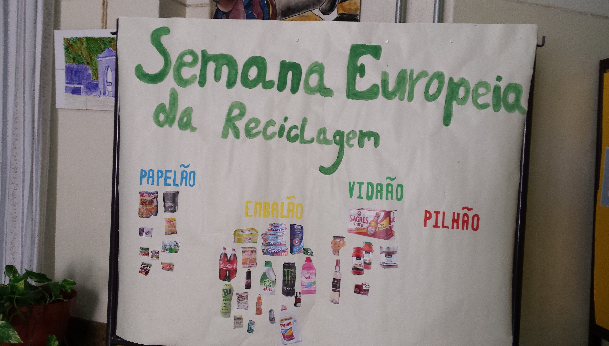 Semana Europeia
da Reciclagem
PAPELÃO
EMBALÃO
VIDRÃO
PILHÃO
SAGRES